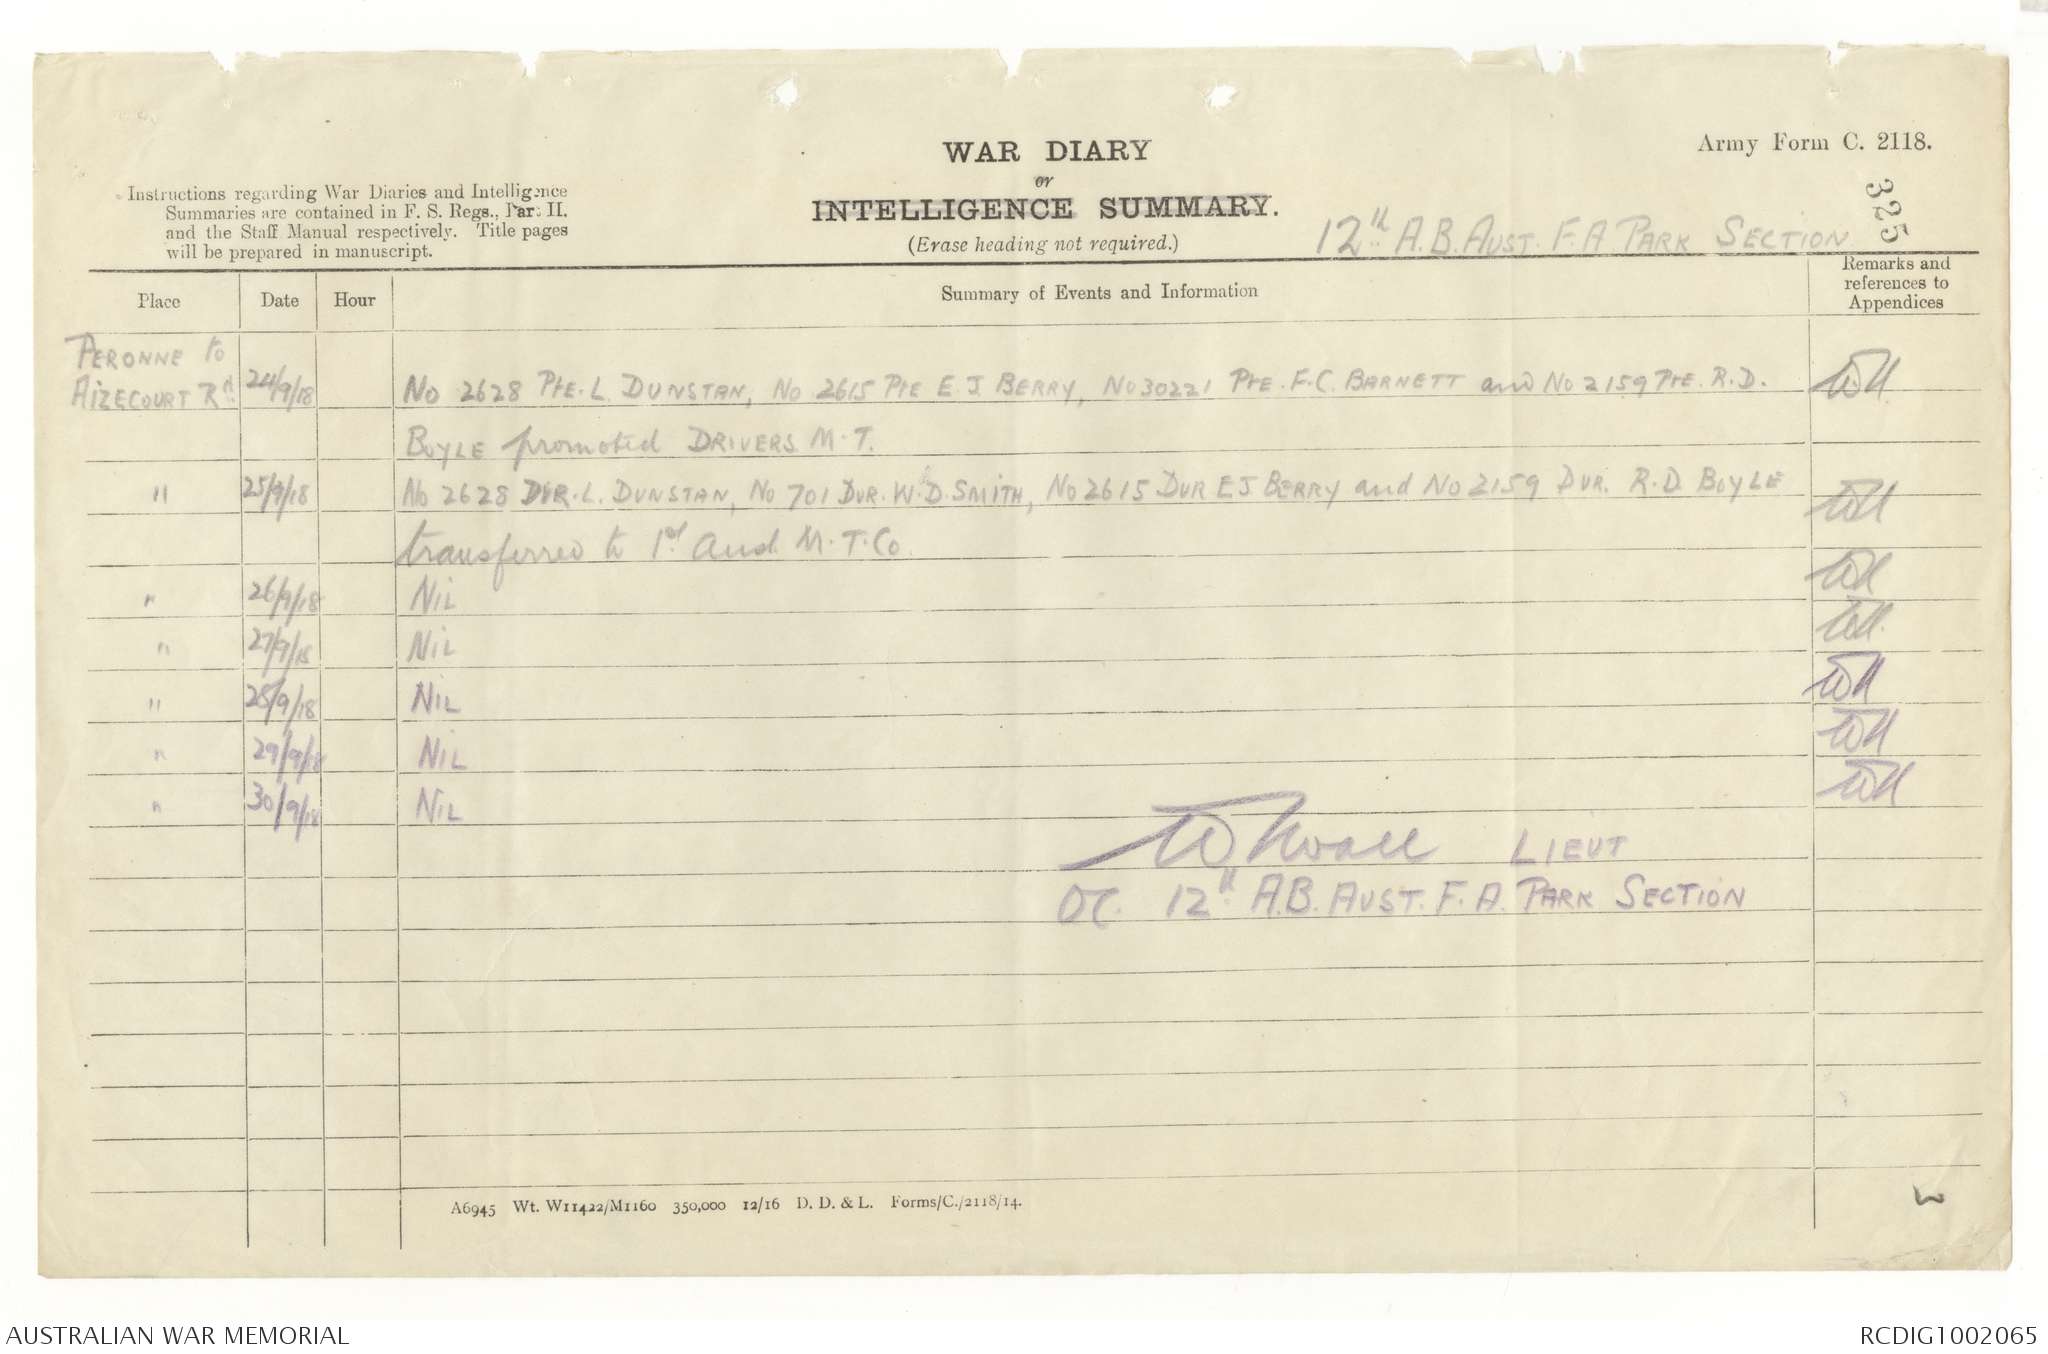 WAR DIARY
or
INTELLIGENCE SUMMARY.
(Erase heading not required.)
Army Form C. 2118.
325
Instructions regarding War Diaries and Intelligence
Summaries are contained in F. S. Regs., Part II.
and the Staff Manual respectively. Title pages
will be prepared in manuscript.
12th A.B. AUST. F.A. PARK SECTION
Place Date Hour Summary of Events and Information Remarks and references to Appendices
PERONNE to
AIZECOURT Rd 24/9/18 No 2628 Pte. L. DUNSTAN, No 2615 Pte E.J. BERRY, No 30221 Pte. F.C. BARNETT and No 2159 Pte. R.D. WH
BOYLE promoted DRIVERS M.T.
" 25/9/18 No 2628 DVR. L. DUNSTAN, No 701 DVR. W.D. SMITH, No 2615 DVR E J BERRY and No 2159 DVR. R.D. BOYLE WH
transferred to 1st Aust. M.T. Co. WH
" 26/9/18 NIL WH
" 27/9/18 NIL WH
" 28/9/18 NIL WH
" 29/9/18 NIL WH
" 30/9/18 NIL WH
LIEUT
OC. 12th A.B. AUST. F.A. PARK SECTION
A6945 Wt. W11422/M1160 350,000 12/16 D. D. & L. Forms/C./2118/14.
3
AUSTRALIAN WAR MEMORIAL
RCDIG1002065